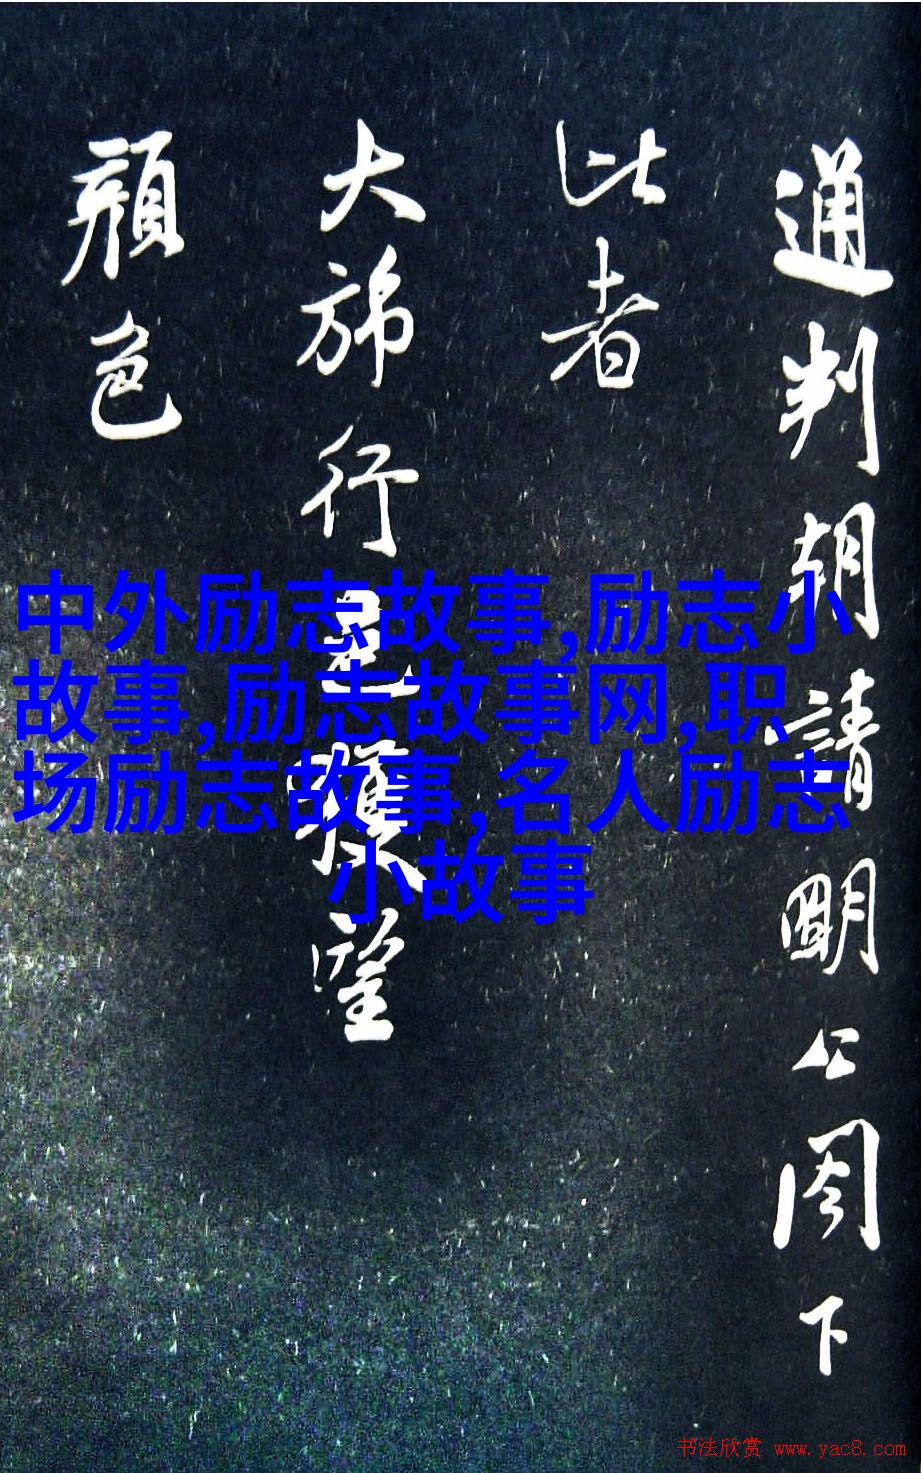 通判朝請明公閣下
此者
大旆行
望
顏色
中外励志故事,励志小
故事,励志故事网,职
场励志故事,名人励志
小故事
书法欣赏 www.yac8.com